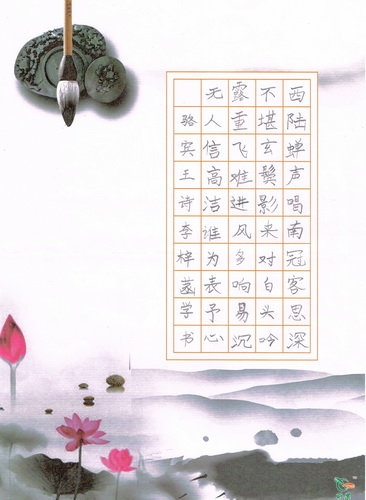 西陆蝉声唱南冠客思深
不堪玄鬓影来对白头吟
露重飞难进风多响易沉
无人信高洁谁为表予心
骆宾王诗李梓菡学书